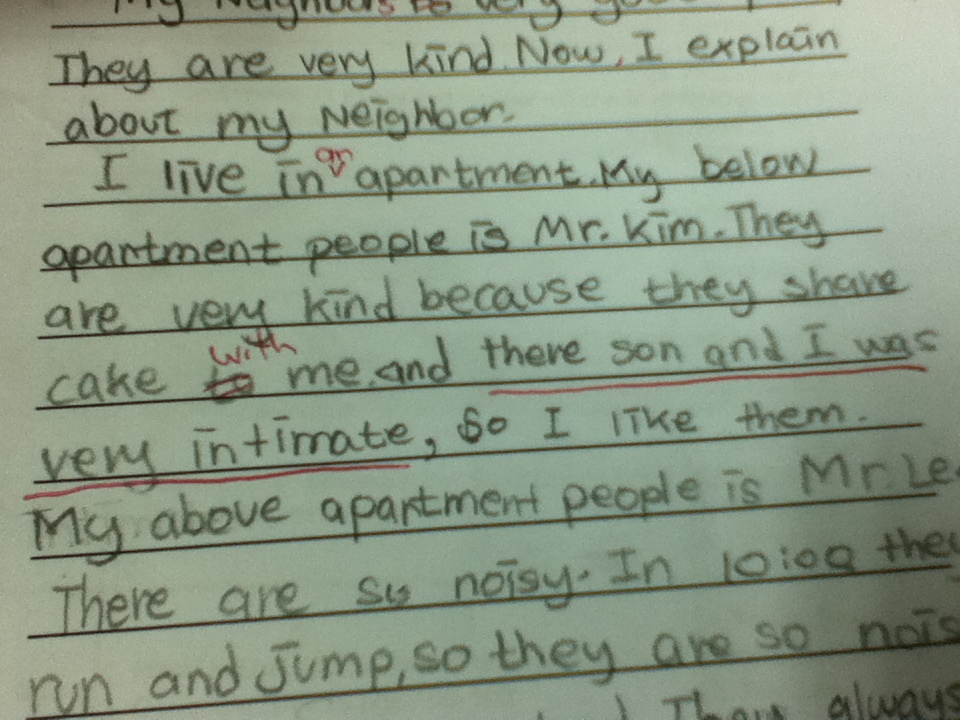 My Neighbors to very good
They are very kind. Now, I explain
about my Neighbor.
I live in an apartment. My below
apartment people is Mr. Kim. They
are very kind because they share
cake to with me. and there son and I was
very intimate, So I like them.
My above apartment people is Mr. Le
There are so noisy. In 10:00 they
run and Jump, so they are so nois
They always